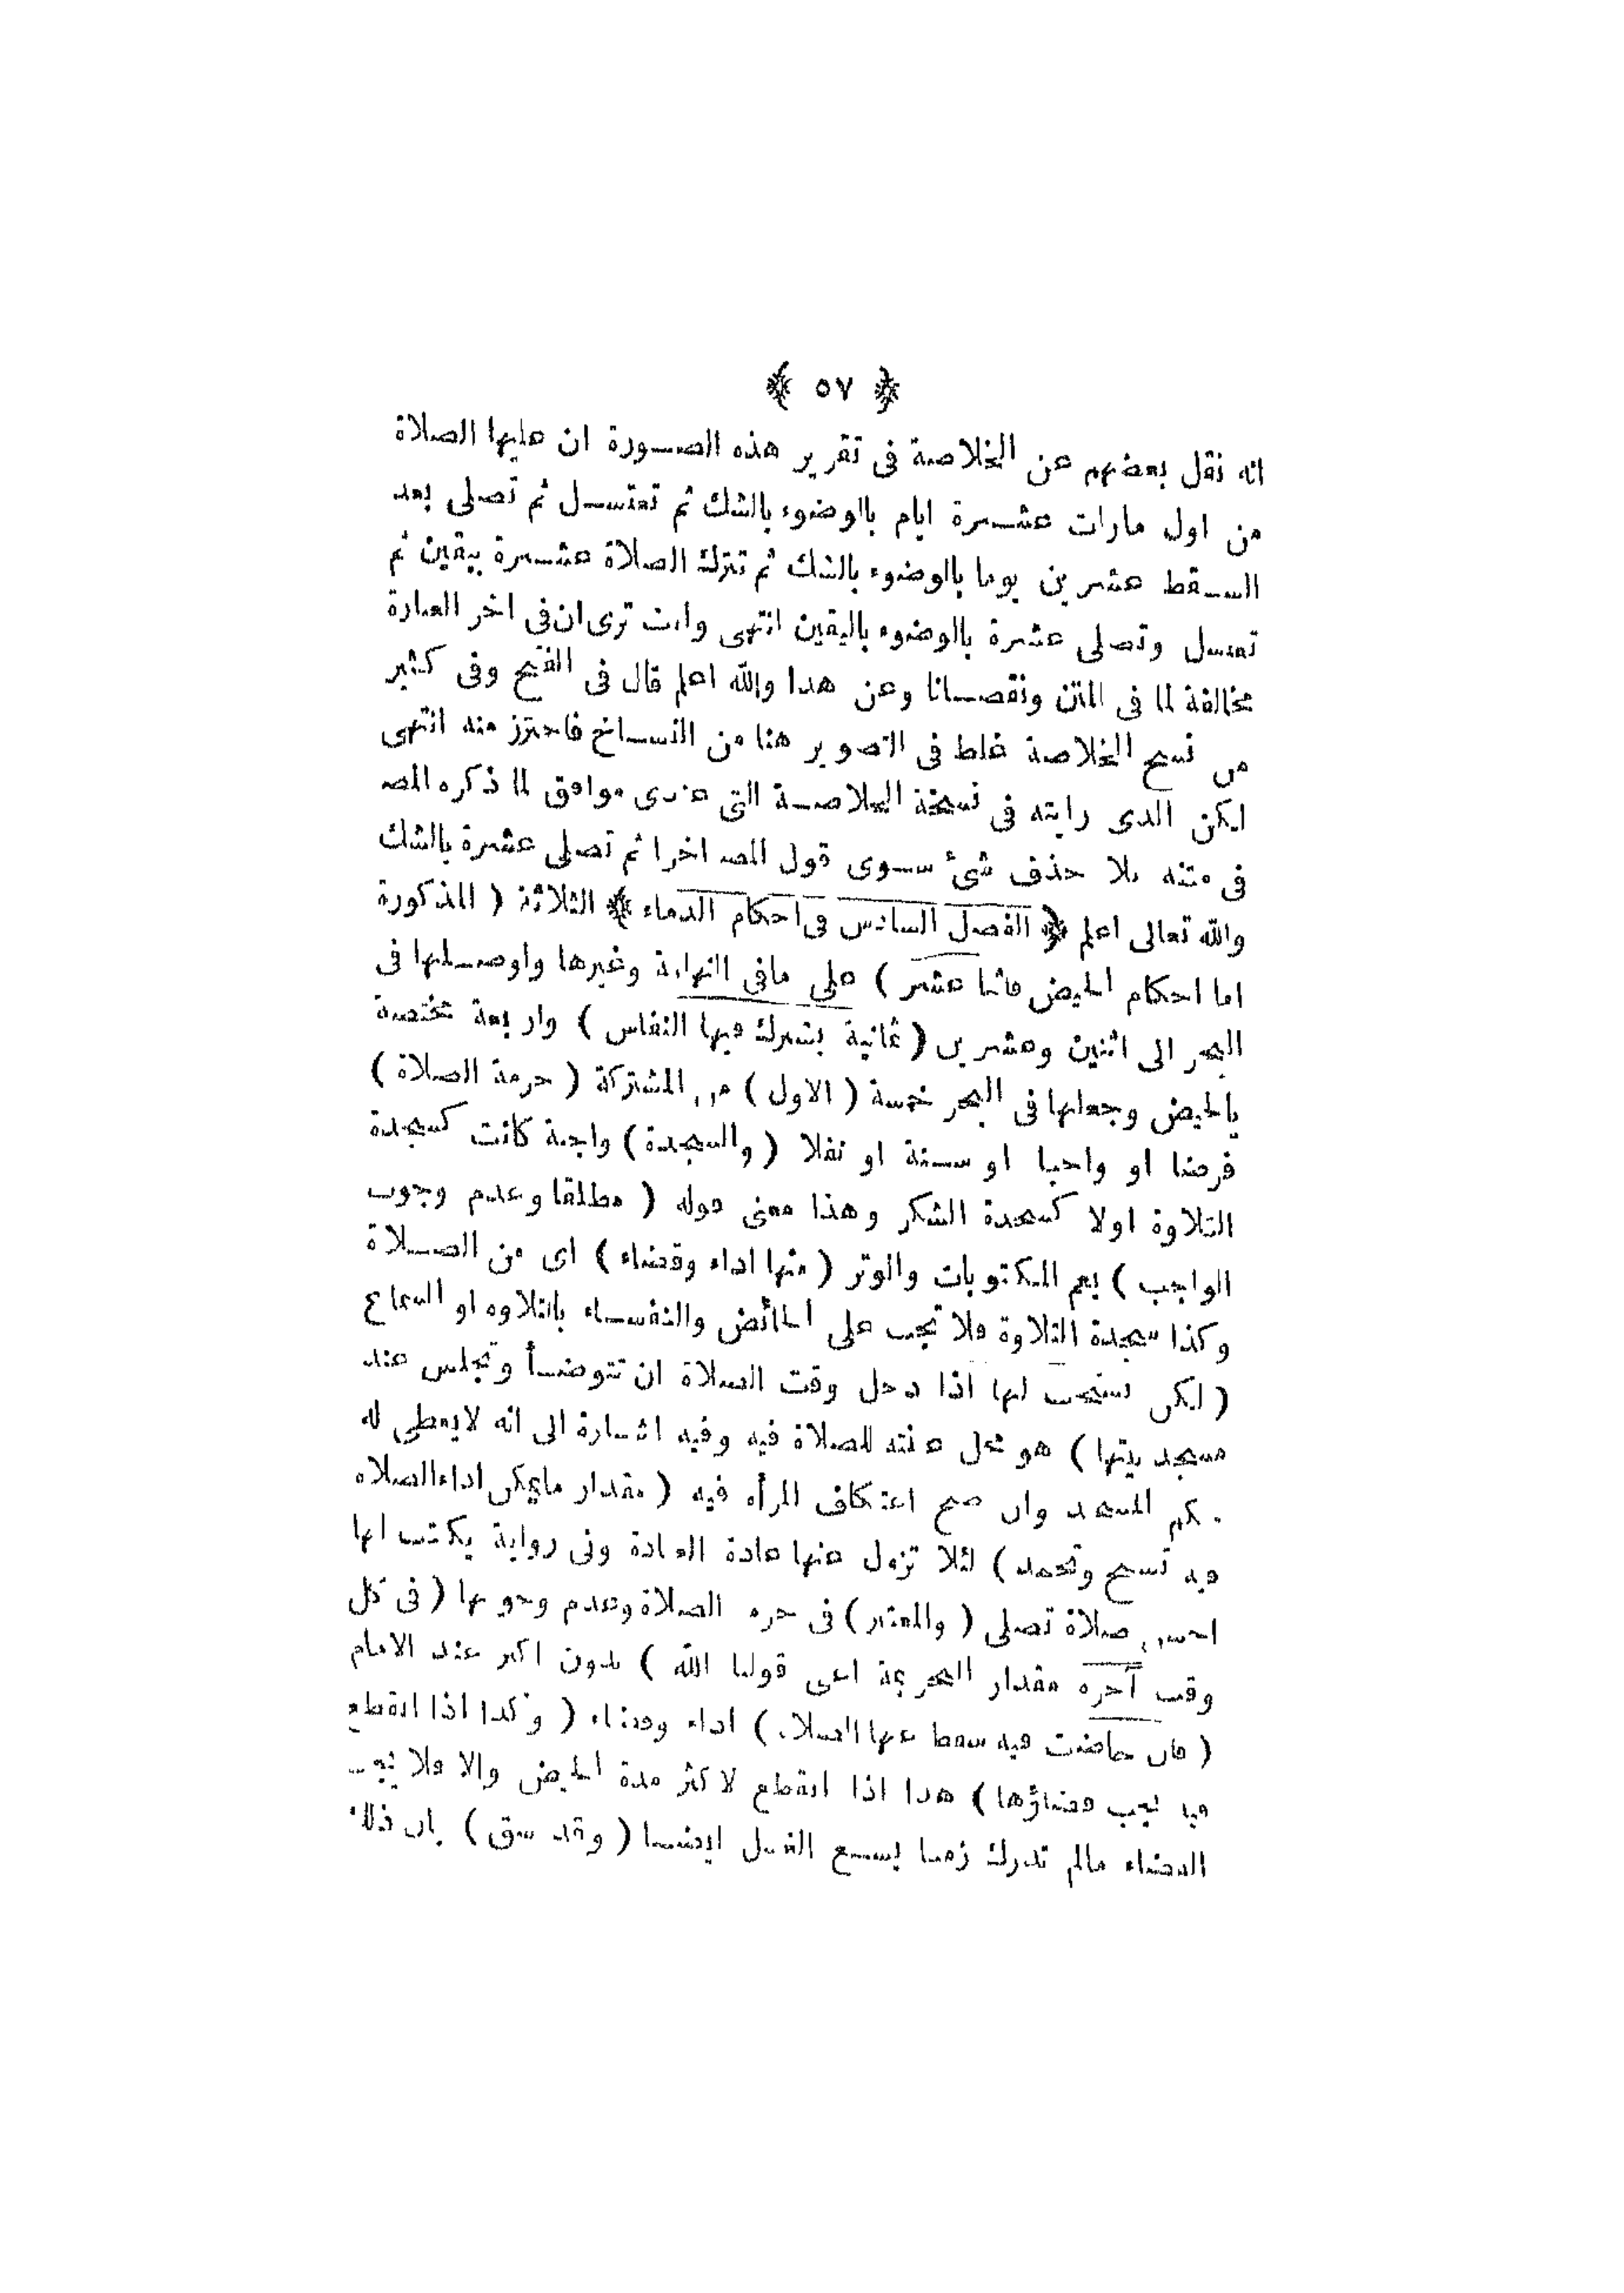 ﴿ ٥٧ ﴾
انه نقل بعضهم عن الخلاصة فى تقرير هذه الصورة ان عليها الصلاة
من اول مارات عشرة ايام بالوضوء بالشك ثم تغتسل ثم تصلى بعد
السقط عشرين يوما بالوضوء بالشك ثم تترك الصلاة عشرة بيقين ثم
تغتسل وتصلى عشرة بالوضوء باليقين انتهى وانت ترى ان فى اخر العبارة
مخالفة لما فى المتن ونقصانا وعن هدا والله اعلم قال فى الفتح وفى كثير
من نسخ الخلاصة غلط فى التصوير هنا من النساخ فاحترز منه انتهى
لكن الدى رايته فى نسخة الخلاصة التى عندى موافق لما ذكره المصـ
فى متنه بلا حذف شئ سوى قول المصـ اخرا ثم تصلى عشرة بالشك
والله تعالى اعلم ﴿ الفصل السادس فى احكام الدماء ﴾ الثلاثة ( المذكورة
اما احكام الحيض فاثنا عشر ) على مافى النهاية وغيرها واوصلها فى
البحر الى اثنين وعشرين ( ثمانية يشترك فيها النفاس ) واربعة مختصة
بالحيض وجعلها فى البحر خمسة ( الاول ) من المشتركة ( حرمة الصلاة )
فرضا او واجبا او سنة او نفلا ( والسجدة ) واجبة كانت كسجدة
التلاوة اولا كسجدة الشكر وهذا معنى قوله ( مطلقا وعدم وجوب
الواجب ) يعم المكتوبات والوتر ( منها اداء وقضاء ) اى من الصلاة
وكذا سجدة التلاوة فلا تجب على الحائض والنفساء بالتلاوه او السماع
( لكن يستحب لها اذا دخل وقت الصلاة ان تتوضأ وتجلس عند
مسجد بيتها ) هو محل عنته للصلاة فيه وفيه اشارة الى انه لايعطى له
حكم المسجد وان صح اعتكاف المرأه فيه ( مقدار مايمكن اداء الصلاه
فيه تسبح وتحمد ) لئلا تزول عنها عادة العبادة وفى رواية يكتب لها
احسن صلاة تصلى ( والمعتبر ) فى حرمه الصلاة وعدم وجوبها ( فى كل
وقت آخره مقدار التحريمة اعنى قولنا الله ) بدون اكبر عند الامام
( فان حاضت فيه سقط عنها الصلاة ) اداء وقضاء ( وكذا اذا انقطع
فيه يجب قضاؤها ) هدا اذا انقطع لاكثر مدة الحيض والا فلا يجب
القضاء مالم تدرك زمنا يسع الغسل ايضا ( وقد سبق ) بيان ذلك